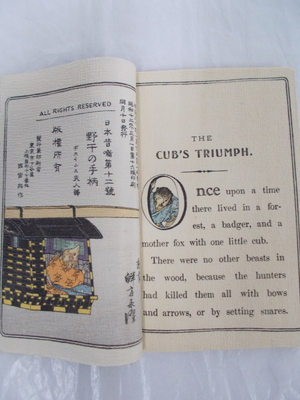 ALL RIGHTS RESERVED
同月十日發行
日本昔噺第十二號
野干の手柄
夫人譯
版權所有
THE
CUB'S TRIUMPH.
Once upon a time
there lived in a for-
est, a badger, and a
mother fox with one little cub.
There were no other beasts in
the wood, because the hunters
had killed them all with bows
and arrows, or by setting snares.